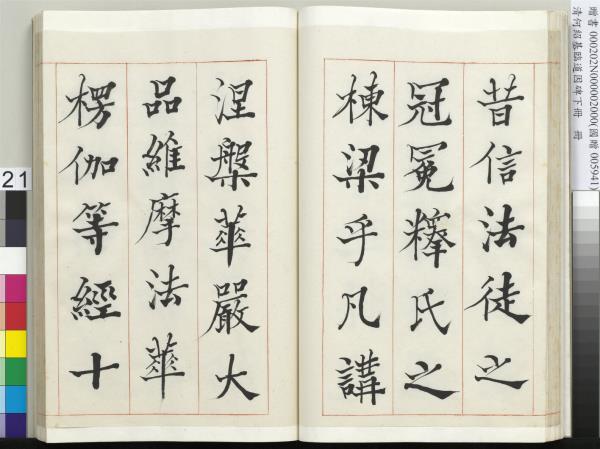 昔信法徒之
冠冕釋氏之
棟梁乎凡講
涅槃華嚴大
品維摩法華
楞伽等經十
贈書 000202N000002000(國贈 005941)
清何紹基臨道因碑下冊 冊
21